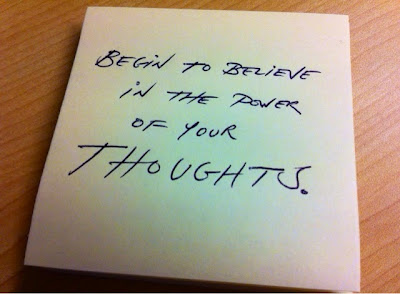 BEGIN TO BELIEVE
IN THE POWER
OF YOUR
THOUGHTS.